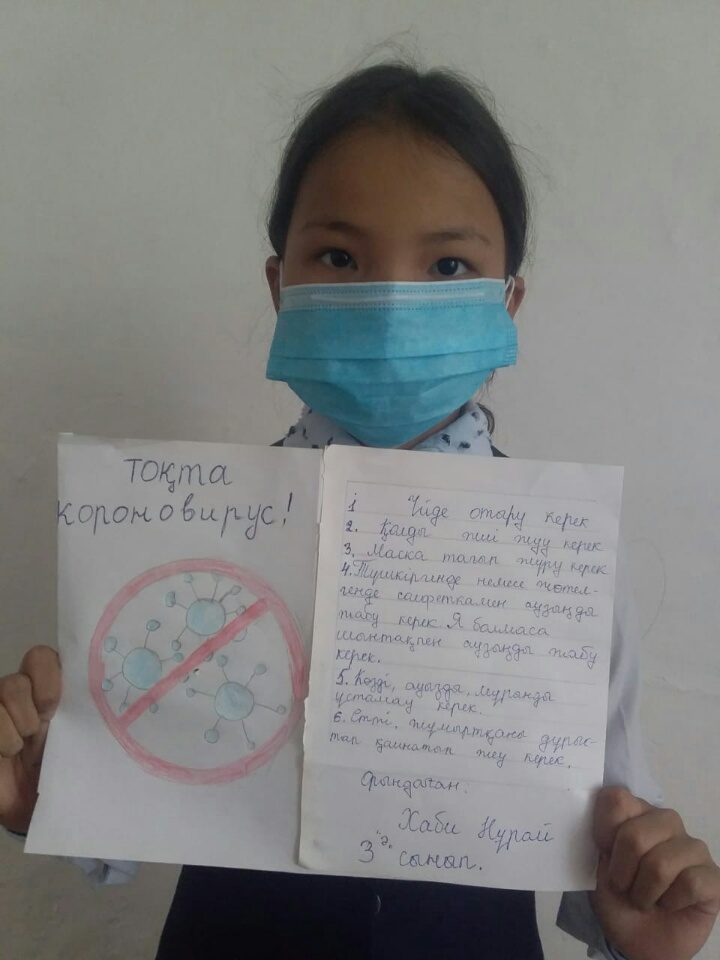 тоқта
короновирус!
1 Үйде отару керек
2. Қолды жиі жуу керек
3. Маска тағып жүру керек
4. Түшкіргенде немесе жөтел-
генде салфеткамен аузыңды
жабу керек Я болмаса
шынтақпен аузыңды жабу
керек.
5. Көзді, ауызды, мұрынды
ұстамау керек.
6. Етті, жұмыртқаны дұрыс-
тап қайнатып жеу керек.
Орындаған:
Хаби Нұрай
3 "ә" сынып.